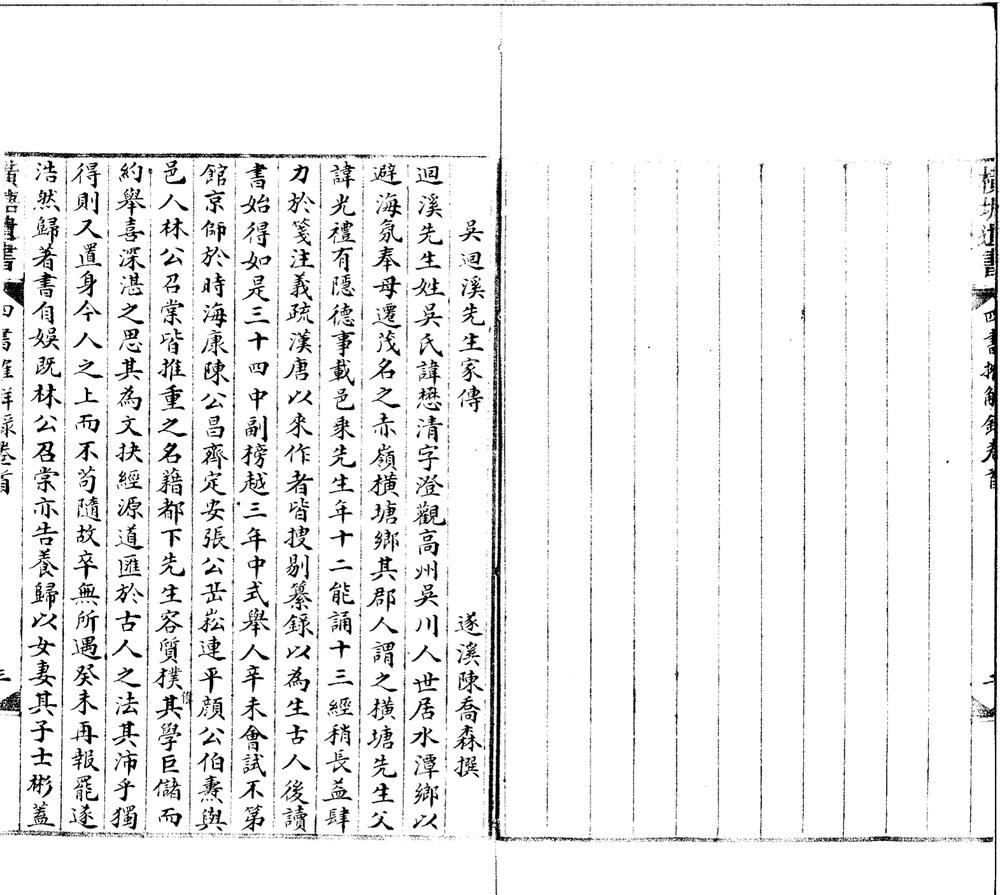 橫塘遺書
四書推解錄卷首
吳迴溪先生家傳
遂溪陳喬森撰
迴溪先生姓吳氏諱懋清字澄觀高州吳川人世居水潭鄉以
避海氛奉母遷茂名之赤嶺橫塘鄉其郡人謂之橫塘先生父
諱光禮有隱德事載邑乘先生年十二能誦十三經稍長益肆
力於箋注義疏漢唐以來作者皆搜剔纂錄以為生古人後讀
書始得如是三十四中副榜越三年中式舉人辛未會試不第
館京師於時海康陳公昌齊定安張公岳崧連平顏公伯燾與
邑人林公召棠皆推重之名藉都下先生容質樸偉其學巨儲而
約舉喜深湛之思其為文抉經源道匯於古人之法其沛乎獨
得則又置身今人之上而不苟隨故卒無所遇癸未再報罷遂
浩然歸著書自娛既林公召棠亦告養歸以女妻其子士彬蓋
橫塘遺書
四書推解錄卷首
三